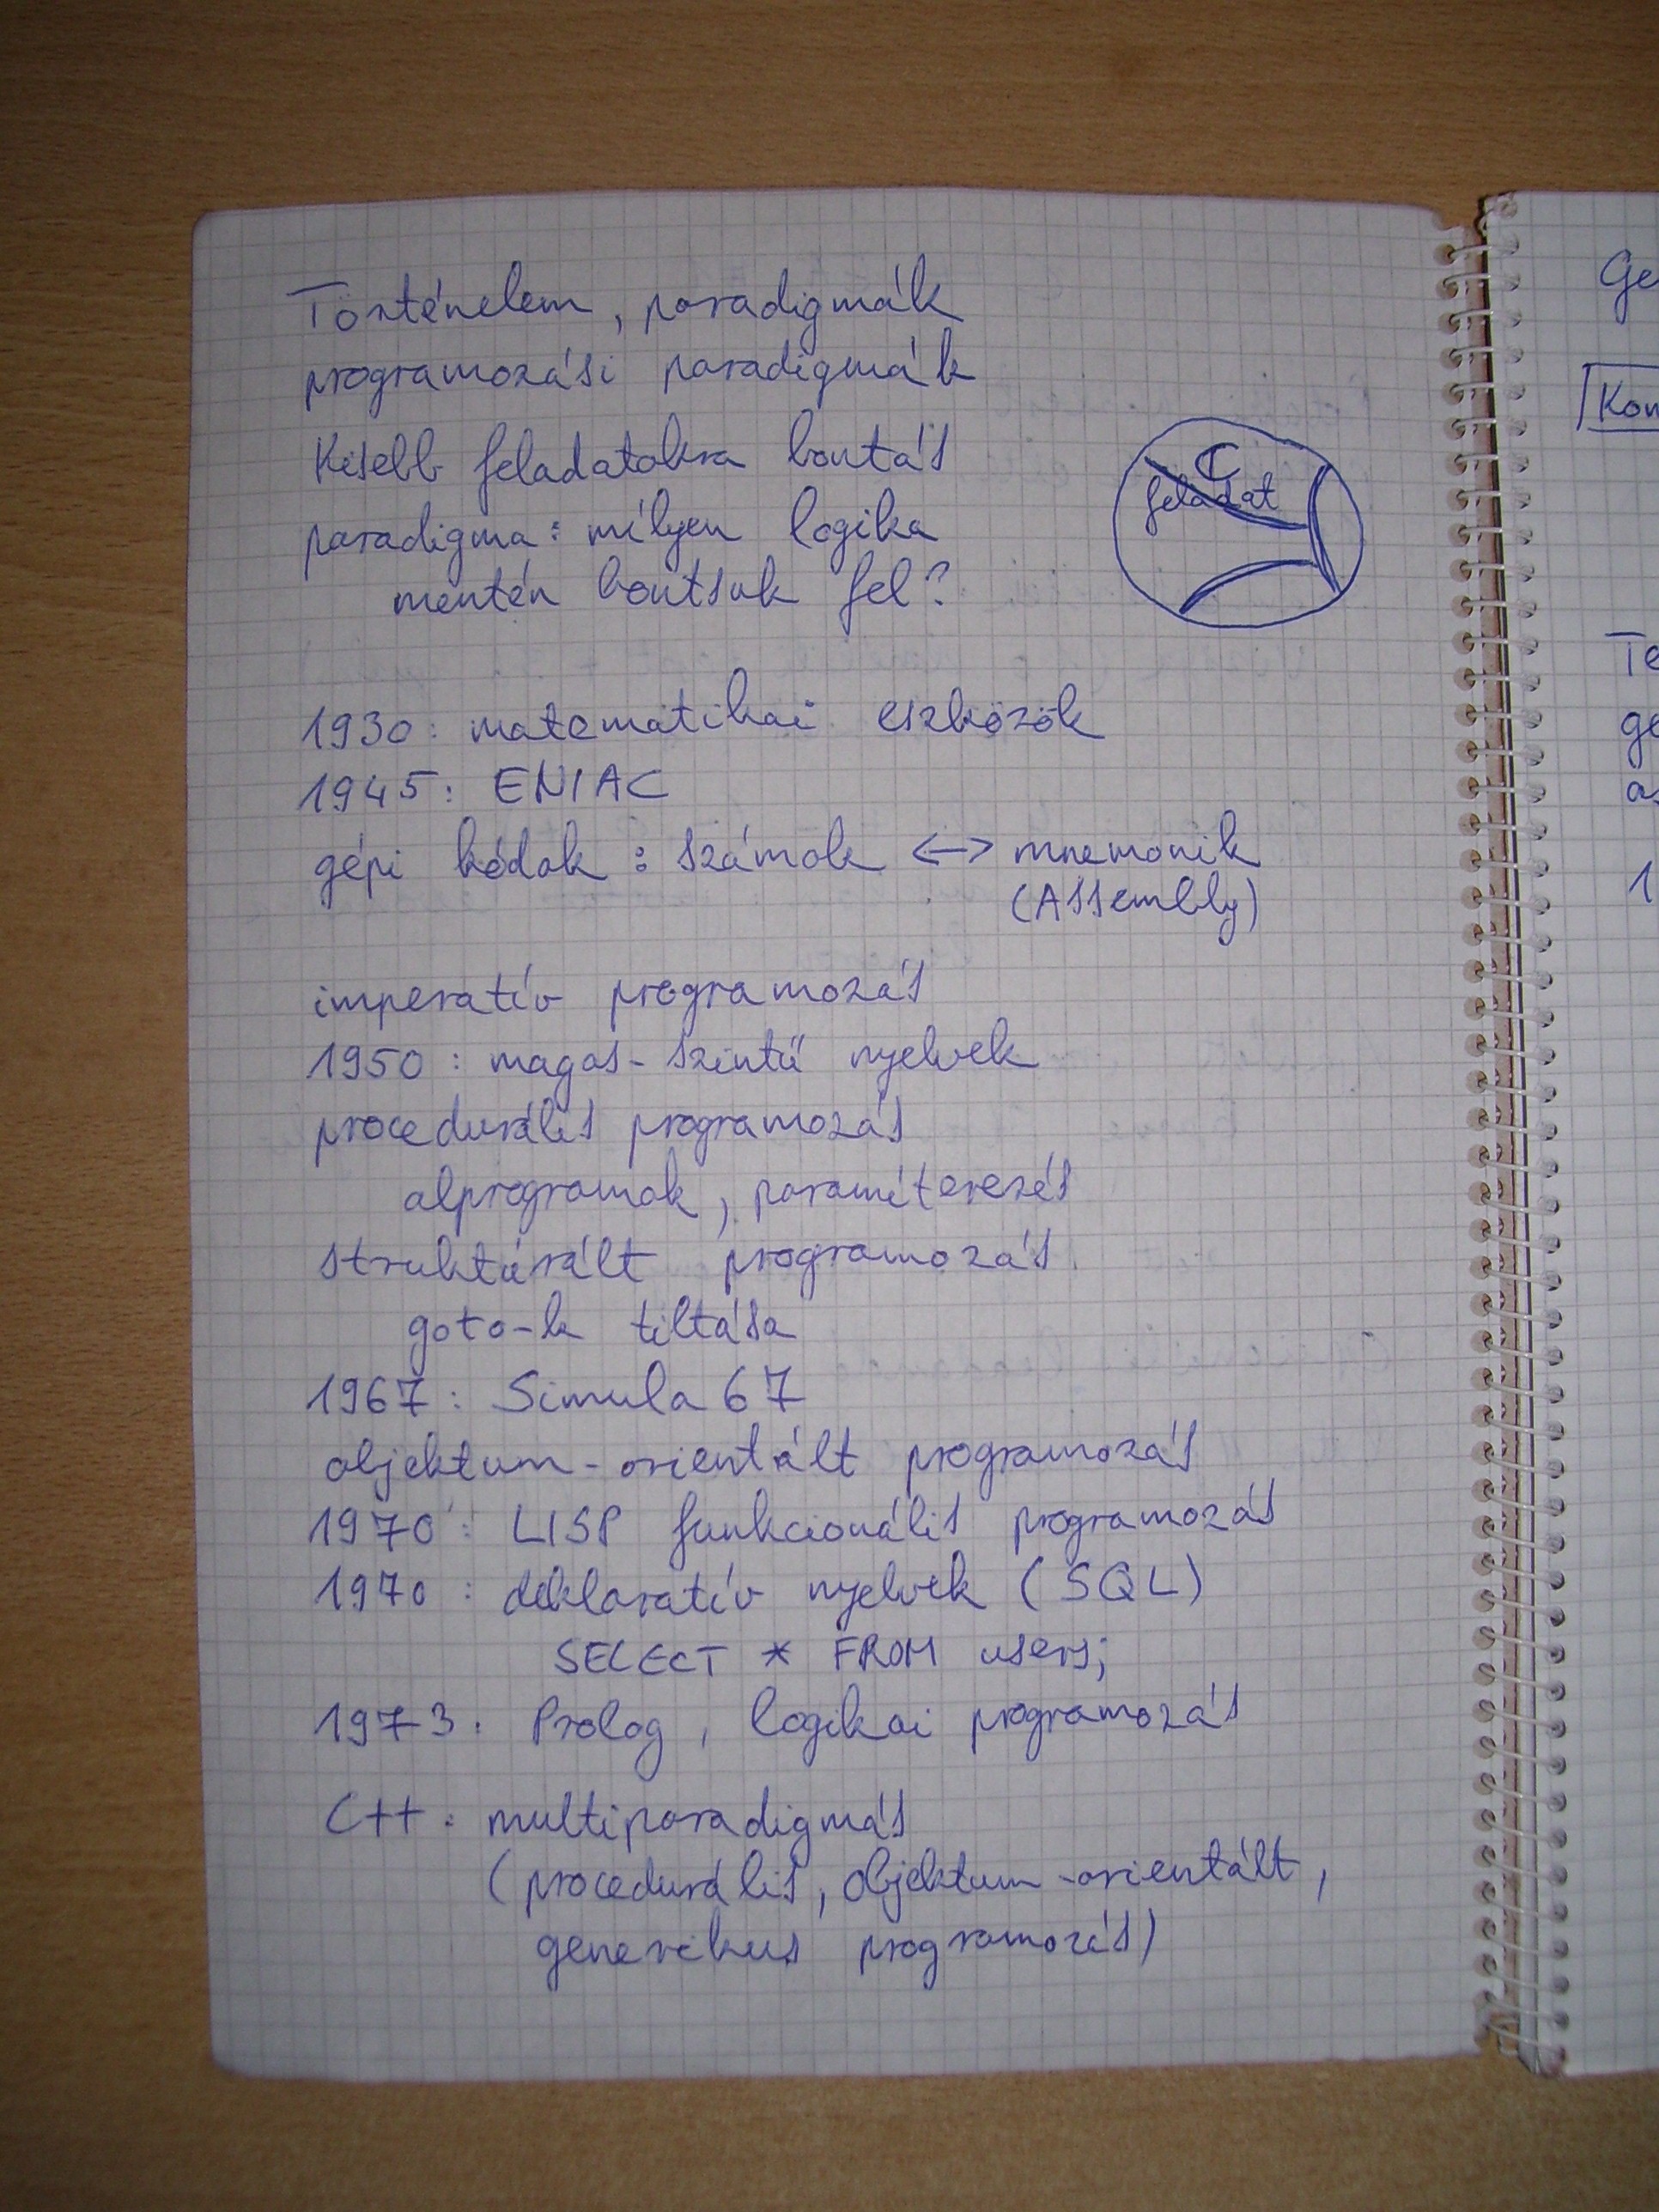 Történelem, paradigmák
programozási paradigmák
Kisebb feladatokra bontás
paradigma: milyen logika
mentén bontsuk fel?
C
feladat
1930: matematikai eszközök
1945: ENIAC
gépi kódok: számok <-> mnemonik
(Assembly)
imperatív programozás
1950: magas-szintű nyelvek
procedurális programozás
alprogramok, paraméterezés
struktúrált programozás
goto-k tiltása
1967: Simula 67
objektum-orientált programozás
1970: LISP funkcionális programozás
1970: deklaratív nyelvek (SQL)
SELECT * FROM users;
1973: Prolog, logikai programozás
C++: multiparadigmás
(procedurális, objektum-orientált,
generikus programozás)
Ge
Kom
Te
ge
as
1